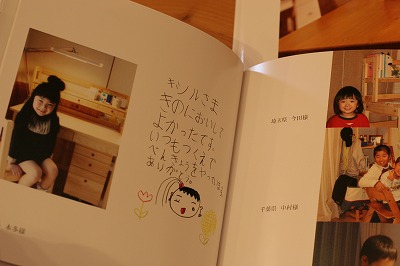 キシルさま
きのにおいして
よかったです。
いつもつくえで
べんきょうをやってます。
ありがとう。
埼玉県 今田様
千葉県 中村様